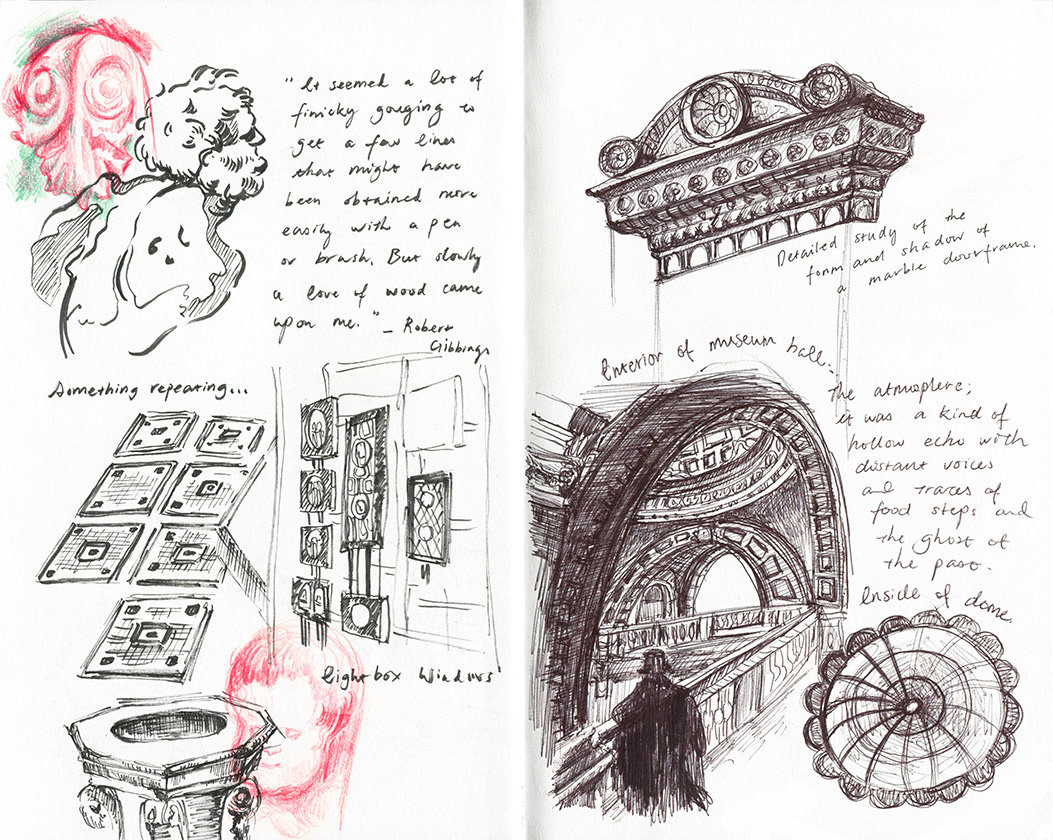 "It seemed a lot of
finicky gouging to
get a few lines
that might have
been obtained more
easily with a pen
or brush. But slowly
a love of wood came
upon me." – Robert
Gibbings
Something repeating...
light box windows
Detailed study of the
form and shadow of
a marble doorframe.
Interior of museum hall...
The atmosphere;
it was a kind of
hollow echo with
distant voices
and traces of
food steps and
the ghost of
the past.
Inside of dome.